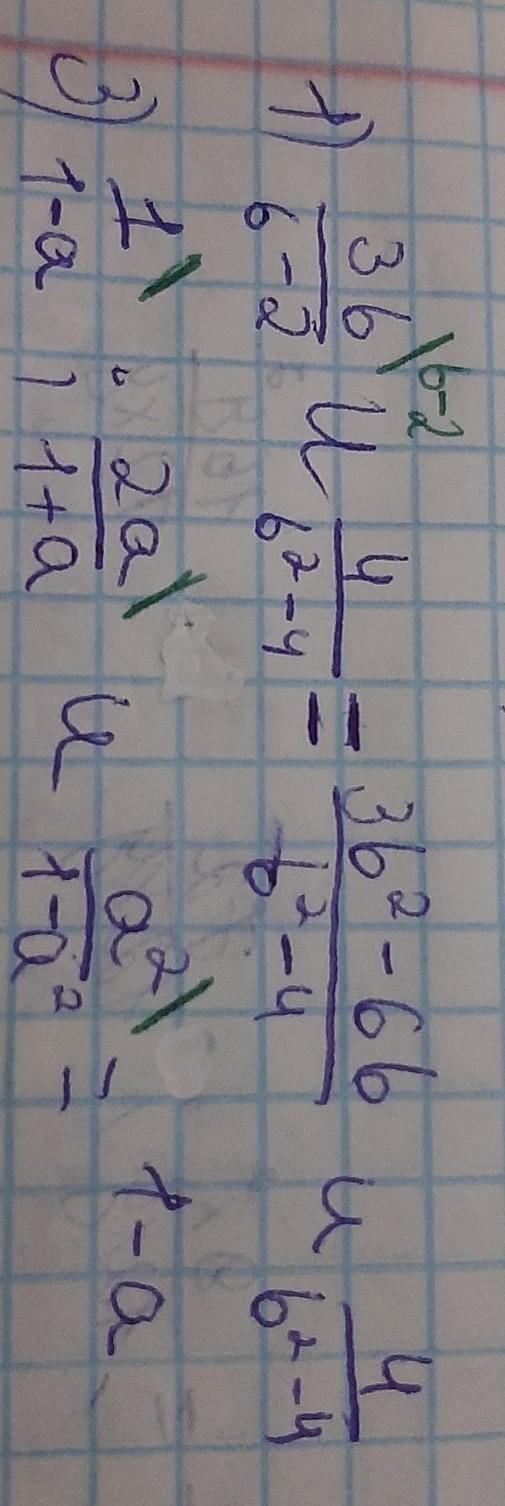 1) 3b/(b-2) \b-2 и 4/(b²-4) = (3b²-6b)/(b²-4) и 4/(b²-4)
3) 1/(1-a) \ ; 2a/(1+a) \ и a²/(1-a²) \ = 1-a